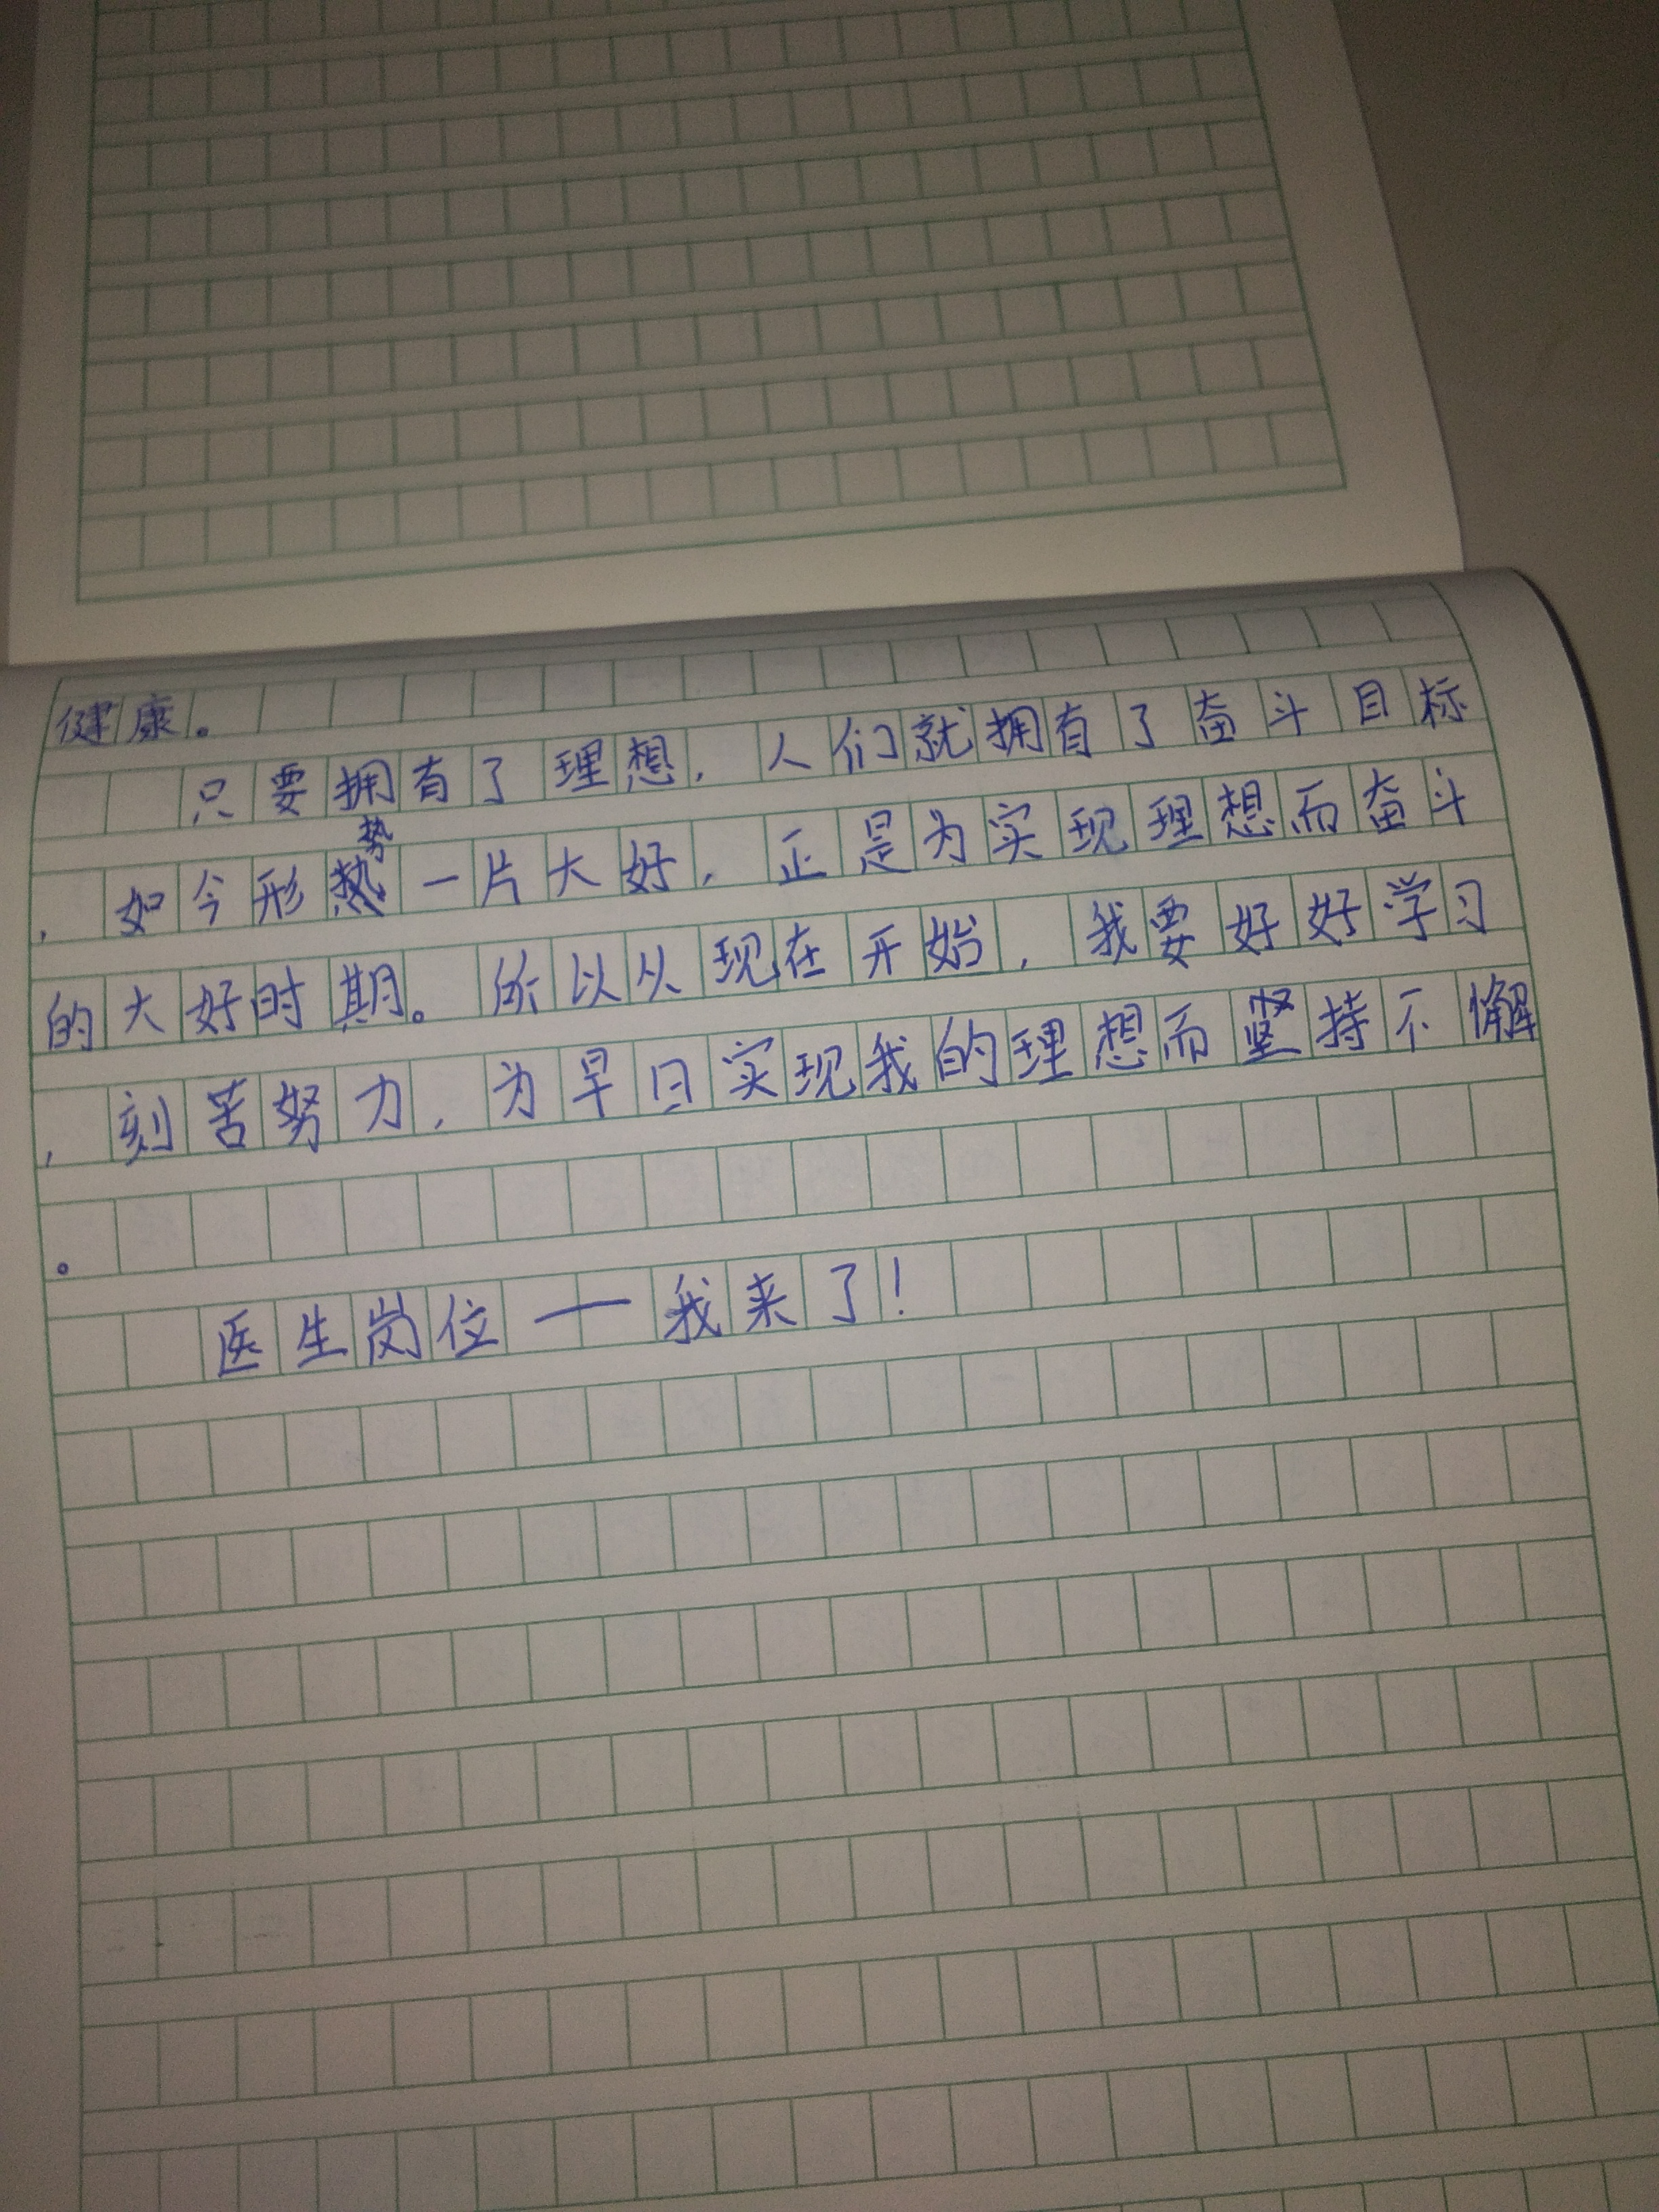 健康。
只要拥有了理想，人们就拥有了奋斗目标
，如今形势一片大好，正是为实现理想而奋斗
的大好时期。所以从现在开始，我要好好学习
，刻苦努力，为早日实现我的理想而坚持不懈
。
医生岗位——我来了！